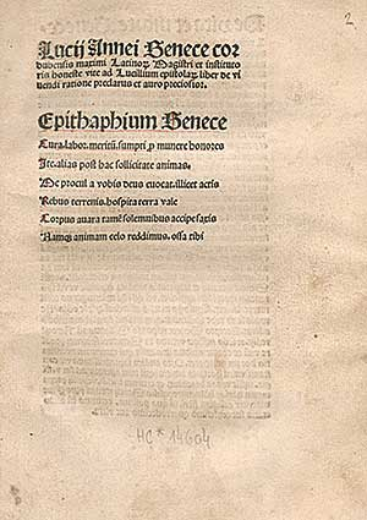 2
Lucij Annei Senece cor
dubensis maximi Latinoꝝ Magistri et instituto
ris honeste vite ad Lucillium epistolaꝝ liber de vi
uendi ratione preclarus et auro preciosior.
Epithaphium Senece
Cura. labor. meritū. sumpti ꝓ munere honores
Ite. alias post hac sollicitate animas.
Me procul a vobis deus euocat. illicet actis
Rebus terrenis. hospita terra vale
Corpus auara tamē solemnibus accipe saxis
Namqꝫ animam celo reddimus. ossa tibi
HC* 14604